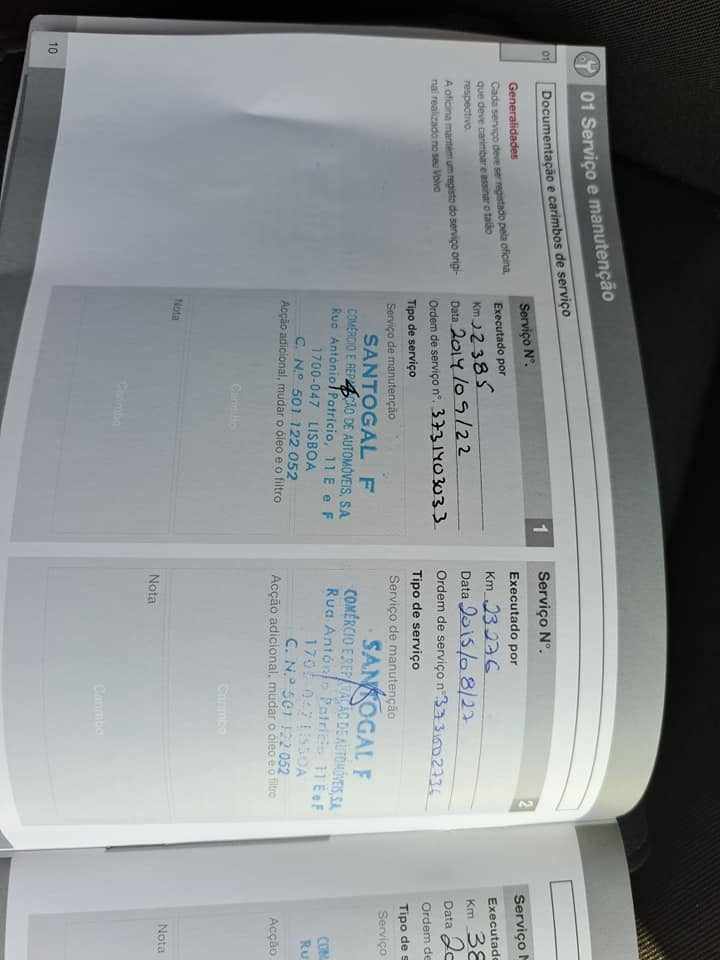 01 Serviço e manutenção
01
Documentação e carimbos de serviço
Generalidades
Cada serviço deve ser registado pela oficina,
que deve carimbar e assinar o talão
respectivo.
A oficina mantém um registo do serviço origi-
nal realizado no seu Volvo
Serviço N°. 1
Executado por
Km 12385
Data 2014/09/22
Ordem de serviço n°.
Tipo de serviço
Serviço de manutenção
SANTOGAL F
COMÉRCIO E REPARAÇÃO DE AUTOMÓVEIS, SA
Rua António Patrício, 11 E e F
1700-047 LISBOA
C. N.º 501 122 052
Acção adicional, mudar o óleo e o filtro
Carimbo
Nota
Carimbo
Serviço N°. 2
Executado por
Km 23276
Data 2015/08/27
Ordem de serviço n°
Tipo de serviço
Serviço de manutenção
SANTOGAL F
COMÉRCIO E REPARAÇÃO DE AUTOMÓVEIS, SA
Rua António Patrício, 11 E e F
1700-047 LISBOA
C. N.º 501 122 052
Acção adicional, mudar o óleo e o filtro
Carimbo
Nota
Carimbo
10
Serviço N
Executad
Km 38
Data 20
Ordem de
Tipo de s
Serviço
COM
Ru
Acção
Nota